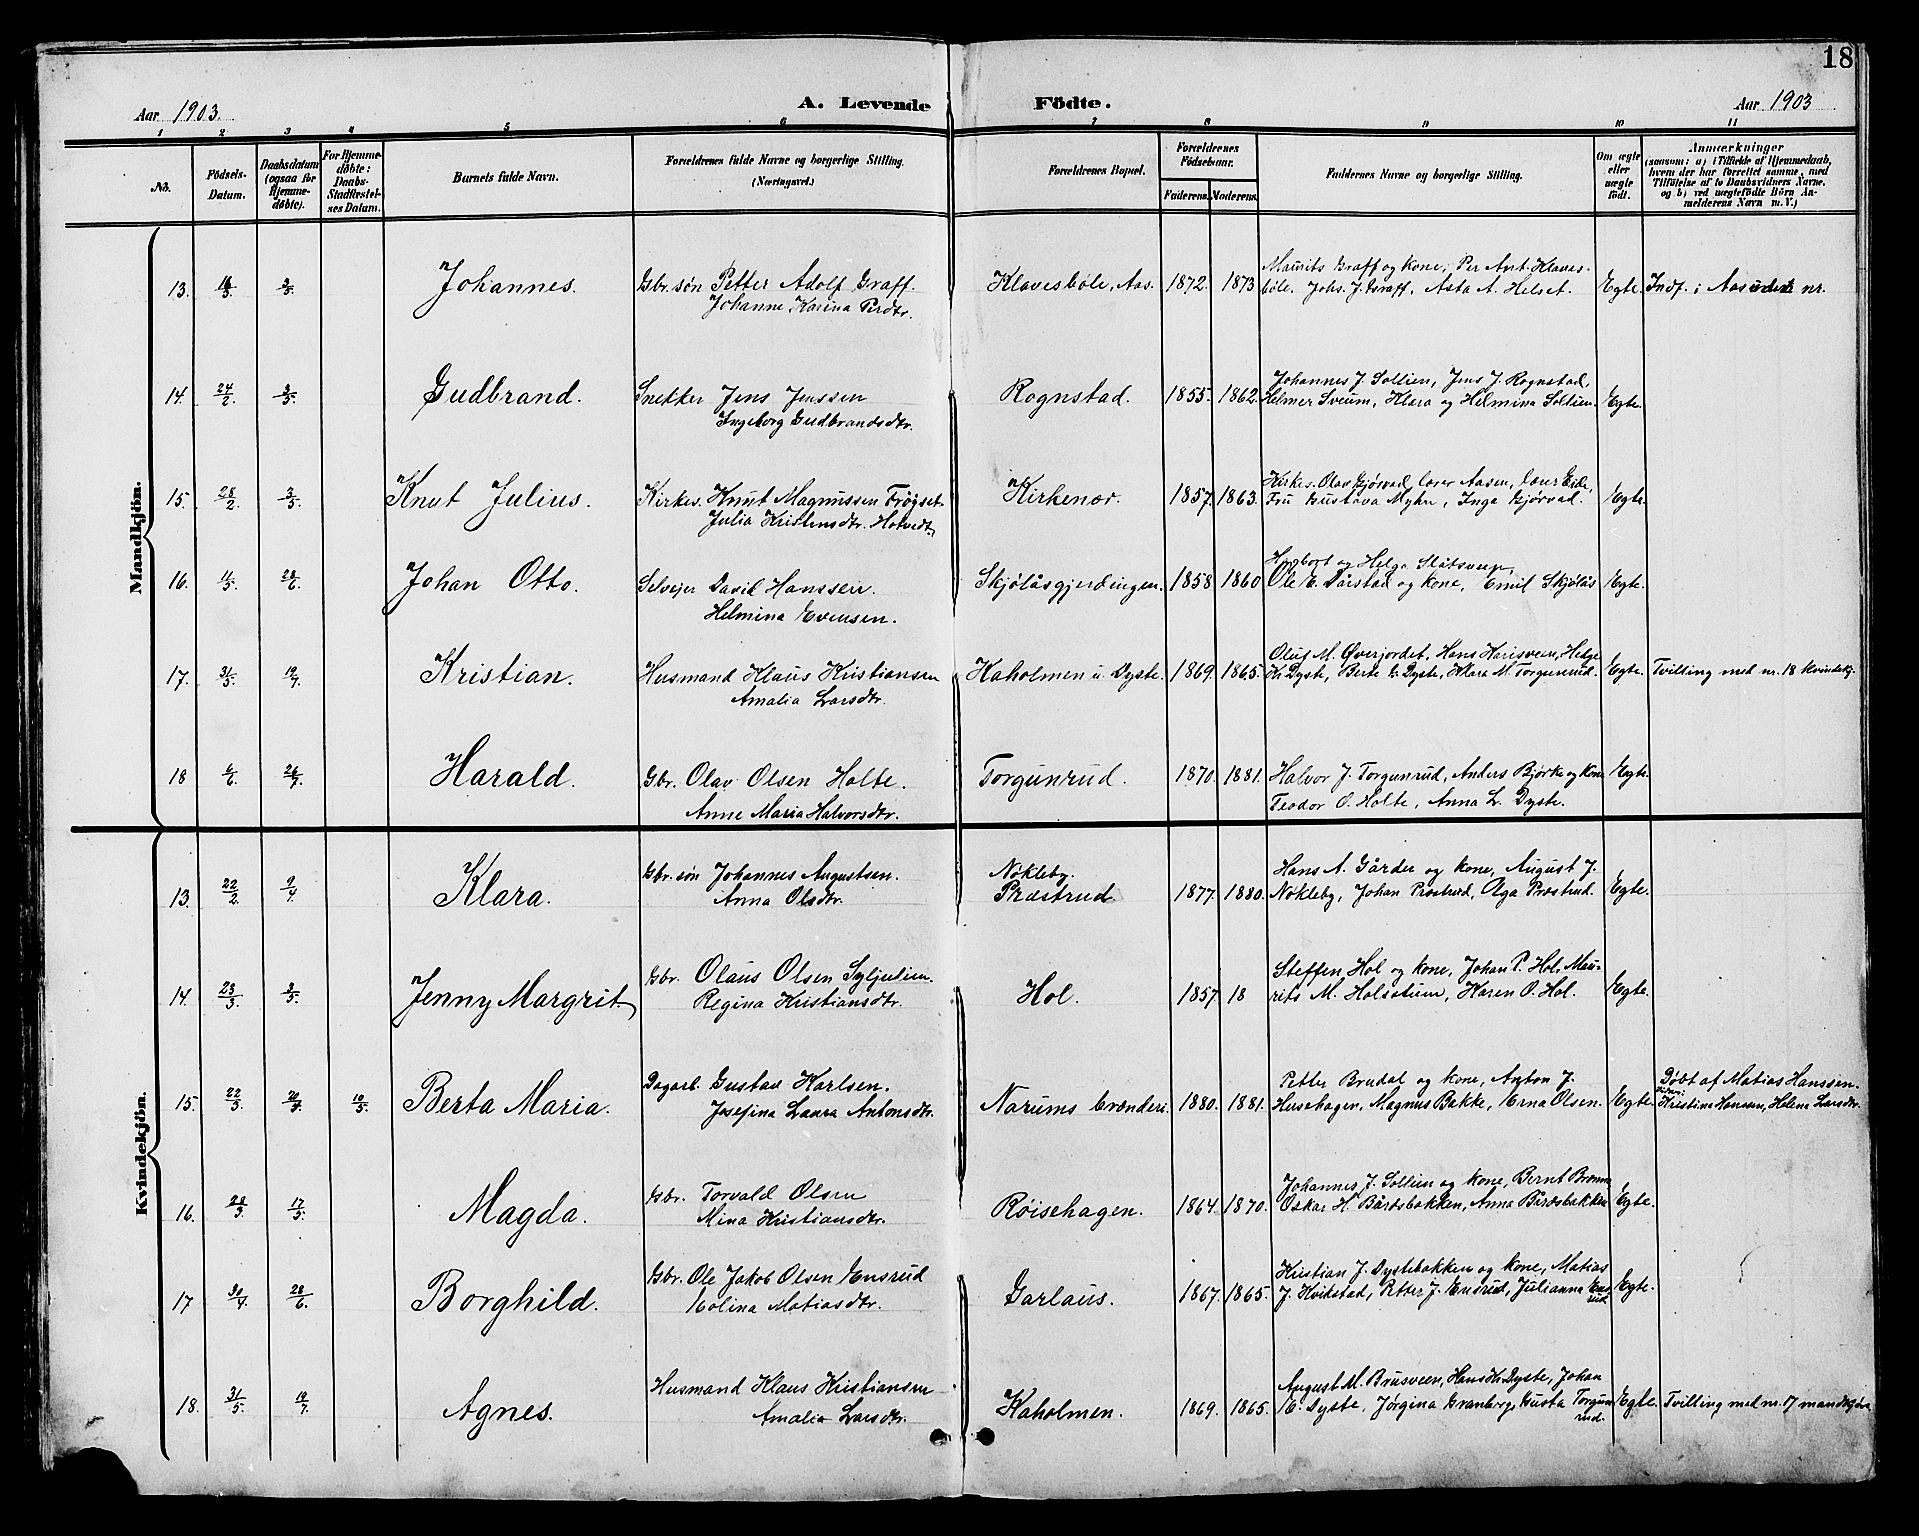 18
Aar 1903.
A. Levende Födte.
Aar 1903
1 2 3 4 5 6 7 8 9 10 11
No.
Födsels-
Datum.
Daabsdatum
(ogsaa for
Hjemme-
döbte).
For Hjemme-
döbte:
Daabs-
Stadfæstel-
ses Datum.
Barnets fulde Navn.
Forældrenes fulde Navne og borgerlige Stilling.
(Næringsvei.)
Forældrenes Bopæl.
Forældrenes
Födselsaar.
Faderens.
Moderens.
Faddernes Navne og borgerlige Stilling.
Om ægte
eller
uægte
födt.
Anmærkninger
(saasom: a) i Tilfælde af Hjemmedaab,
hvem der har forrettet samme, med
Tilföielse af to Daabsvidners Navne,
og b) ved uægtefödte Börn An-
melderens Navn m. V.)
Mandkjön.
13. 3/5 Johannes. Gbr. søn Petter Adolf Graff.
Johanne Karina Perdtr.
Klavesbøle, Aas. 1872. 1873
Maurits Graff og kone, Per Ant. Klaves-
bøle. Johs. J. Graff, Asta A. Helset.
Egte. Indf. i Aas nr.
14. 24/2 3/5 Gudbrand. Snekker Jens Jenssen
Ingeborg Gudbrandsdtr.
Rognstad. 1855. 1862.
Johannes J. Sollien, Jens J. Rognstad,
Helmer Sveum, Klara og Helmina Sollien.
Egte.
15. 28/2 3/5 Knut Julius. Kirkes. Knut Magnussen Frøgset
Julia Kristensdtr. Hotvedt.
Kirkenær. 1857. 1863.
Kirkes. Olav Gjørvad, lærer Aasen, lærer Eile,
Fru Gustava Myhre, Inga Gjørvad.
Egte.
16. 11/3 28/6 Johan Otto. Selvejer David Hanssen.
Helmina Evensen.
Skjølåsgjerdingen. 1858 1860
og Helga
Ole E. Dårstad og kone, Emil Skjølås
Egte.
17. 31/5 19/7 Kristian. Husmand Klaus Kristiansen
Amalia Larsdtr.
Kaholmen u. Dyste. 1869. 1865.
Oluf M. Øverjordet, Hans Harisveen, Helge
Kr. Dyste, Berte L. Dyste, Klara M. Torgunrud.
Egte. Tvilling med nr. 18 kvindekj.
18 6/6 26/7 Harald. Gbr. Olav Olsen Holte.
Anne Maria Halvorsdtr.
Torgunrud. 1870. 1881.
Halvor J. Torgunrud, Anders Bjørke og kone
Teodor O. Holte, Anna L. Dyste.
Egte.
Kvindekjön.
13. 22/2 9/4 Klara. Gbr. søn Johannes Augustsen.
Anna Olsdtr.
Nøkleby.
Præstrud 1877. 1880.
Hans A. Gårder og kone, August J.
Nøkleby, Johan Præstrud, Olga Præstrud.
Egte.
14. 23/3 3/5 Jenny Margrit. Gbr. Olaus Olsen Syljulien.
Regina Kristiansdtr.
Hol. 1857 18
Steffen Hol og kone, Johan P. Hol, Mau-
rits M. Holsetuen, Karen O. Hol.
Egte.
15. 22/3 10/5 Berta Maria. Dagarb. Gustav Karlsen.
Josefina Laura Antonsdtr.
Narums brænderi. 1880. 1881.
Petter Brudal og kone, Anton J.
Husehagen, Magnus Bakke, Erna Olsen.
Egte.
Døbt af Matias Hanssen.
Kristine Hansen, Helene Larsdtr.
16. 28/3 17/5 Magda. Gbr. Torvald Olsen
Mina Kristiansdtr.
Røisehagen. 1864. 1870.
Johannes J. Sollien og kone, Bernt Bromma
Oskar H. Bårdsbakken, Anna Bårdsbakken
Egte.
17 30/4 28/6 Borghild. Gbr. Ole Jakob Olsen Ensrud
Eolina Matiasdtr.
Garlaus. 1867. 1865.
Kristian J. Dystebakken og kone, Matias
J. Hvikstad, Petter J. Ensrud, Julianna Ens-
rud
Egte.
18. 31/5 19/7 Agnes. Husmand Klaus Kristiansen
Amalia Larsdtr.
Kaholmen. 1869. 1865.
August M. Brusveen, Hans Kr. Dyste, Johan
E. Dyste, Jørgina Granberg, Gusta Torgun-
rud.
Egte. Tvilling med nr. 17 mandkjøn